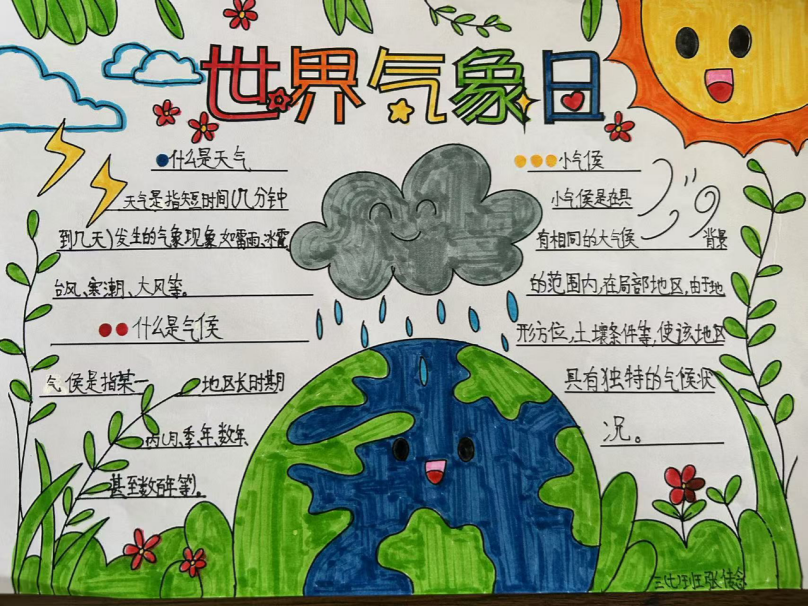 世界气象日
什么是天气
天气是指短时间(几分钟
到几天)发生的气象现象,如雷雨、冰雹、
台风、寒潮、大风等。
什么是气候
气候是指某一地区长时期
内(月、季、年、数年、
甚至数百年等)。
小气候
小气候是在具
有相同的大气候背景
的范围内,在局部地区,由于地
形方位,土壤条件等,使该地区
具有独特的气候状
况。